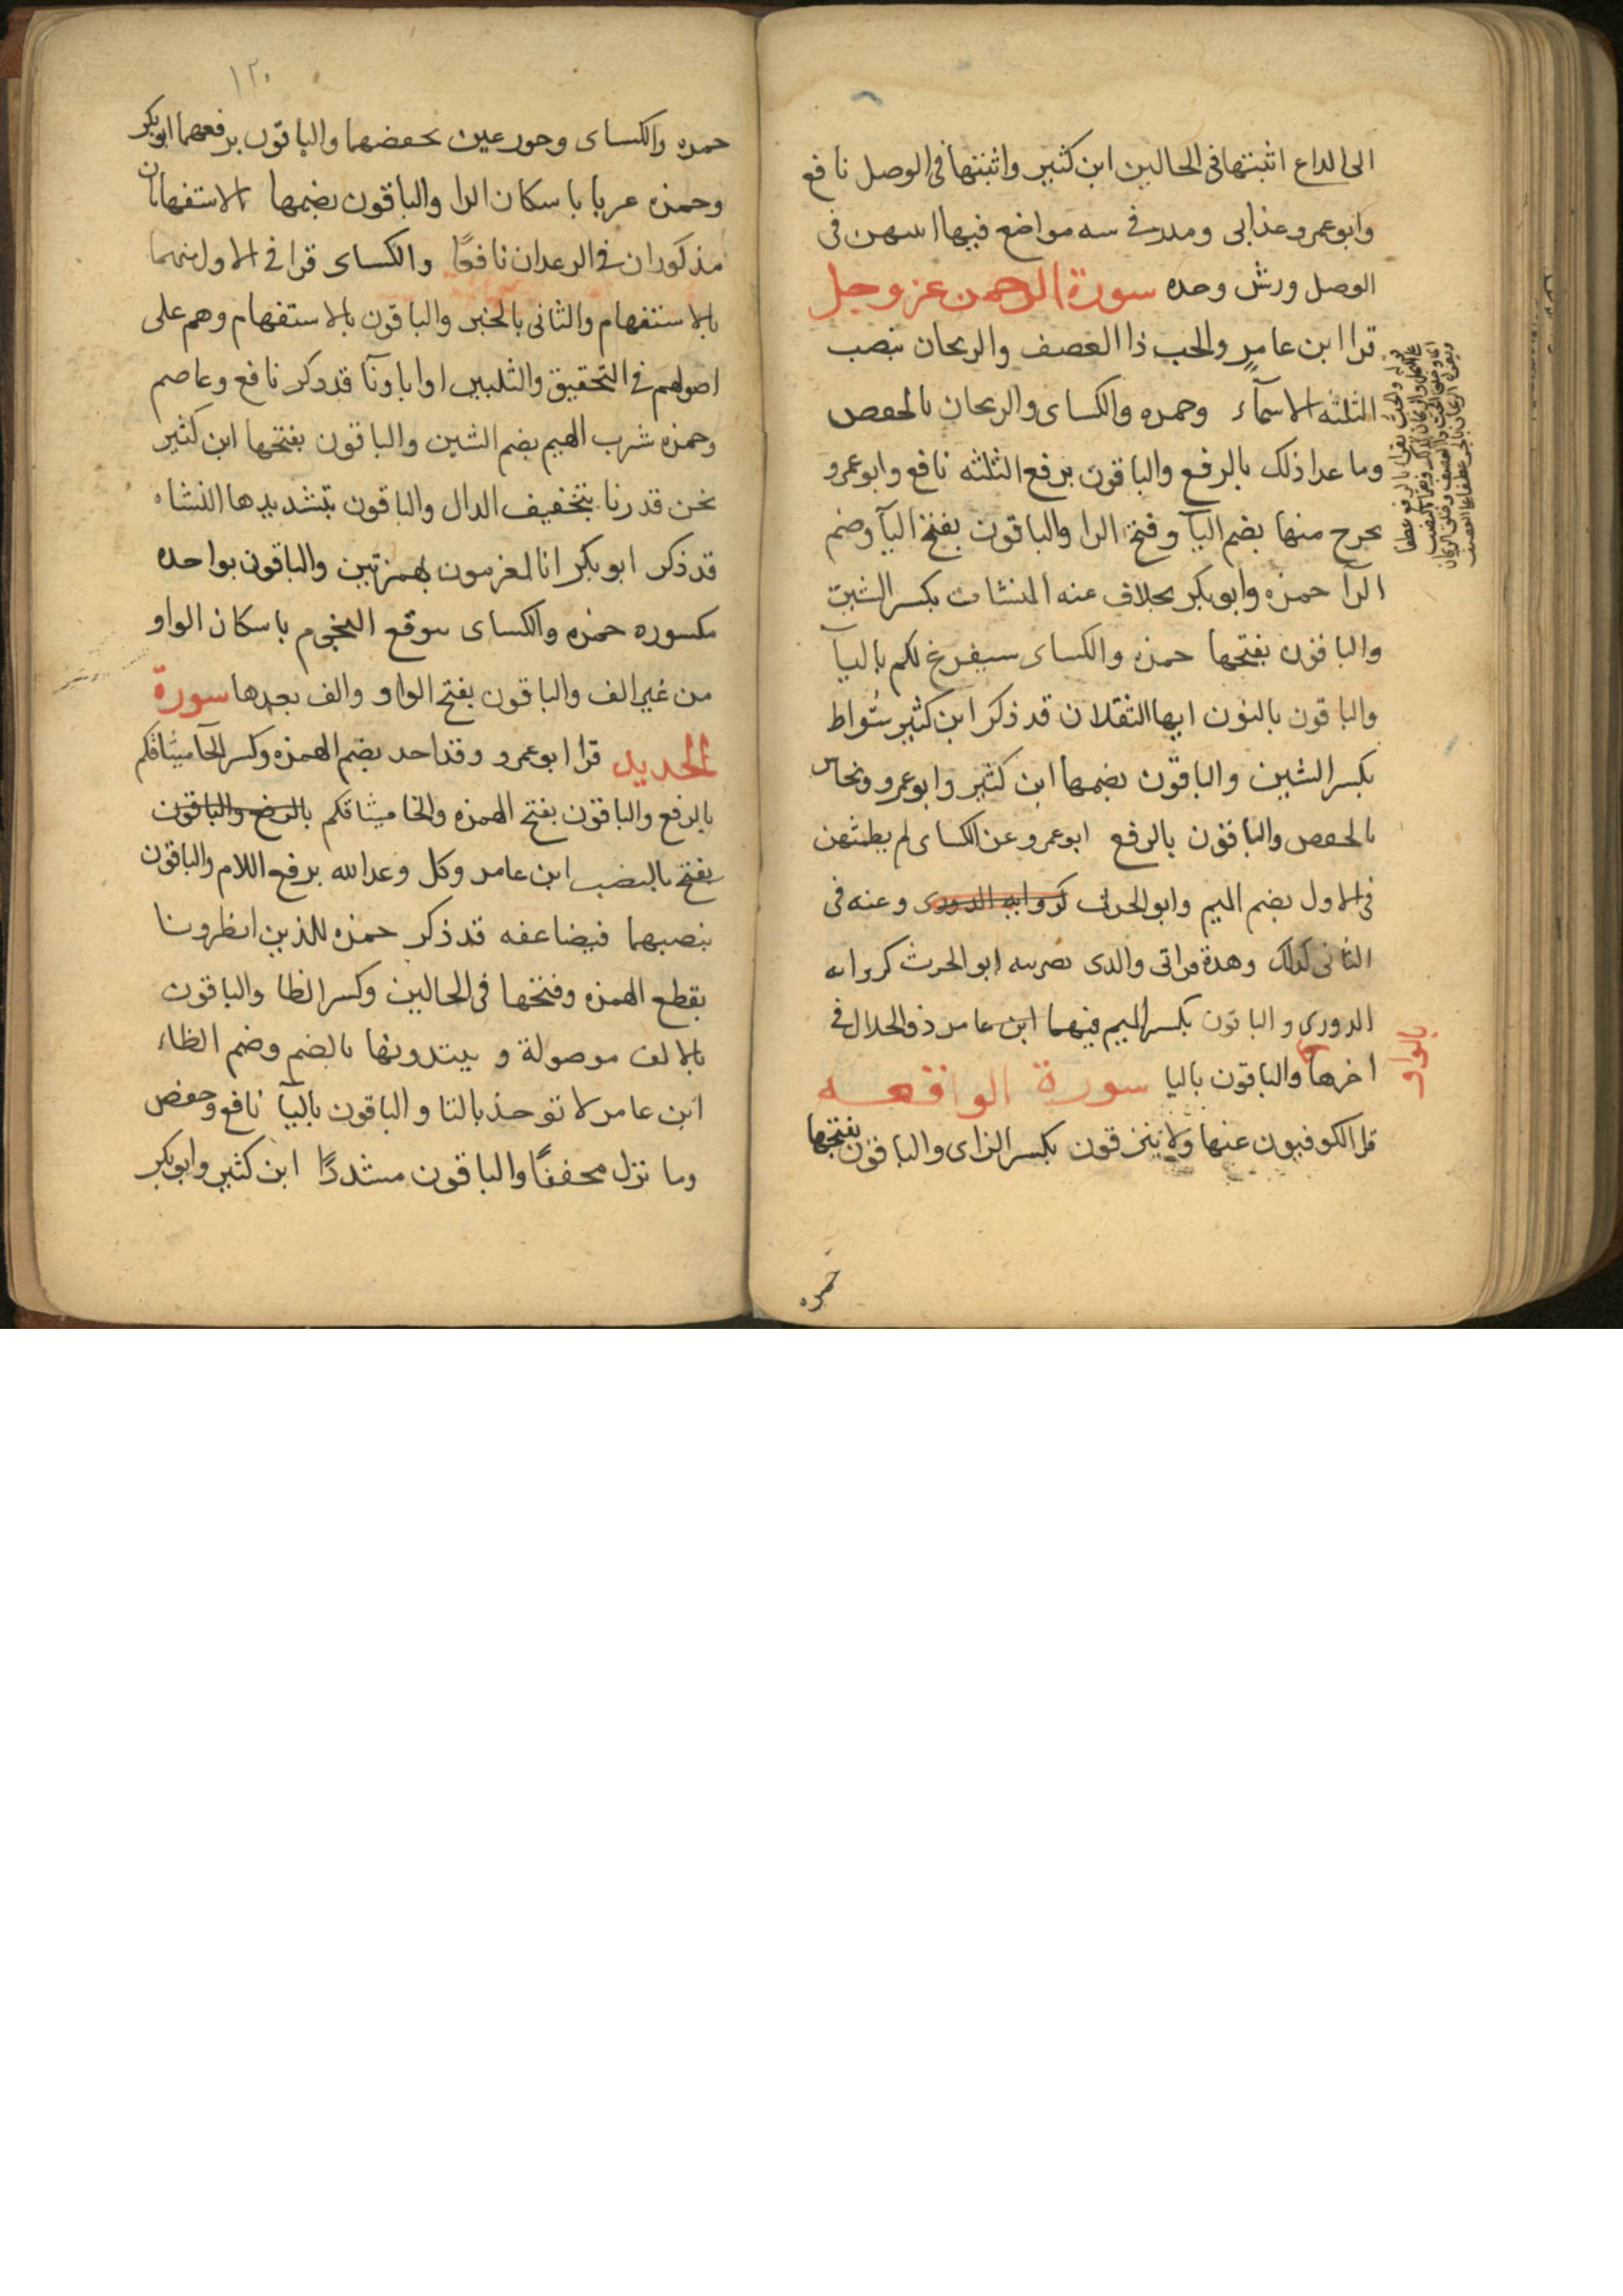 الى الداع اثبتها فى الحالين ابن كثير واثبتها فى الوصل نافع
وابو عمرو عذابى ونذر فى سه مواضع فيها اسهن فى
الوصل ورش وحده سورة الرحمن عز وجل
قرا ابن عامر والحب ذا العصف والريحان بنصب
الثلثه الاسمآء وحمزه والكساى والريحان بالخفض
وما عدا ذلك بالرفع والباقون برفع الثلثه نافع وابو عمرو
يخرج منها بضم اليآ وفتح الرا والباقون بفتح اليآ وضم
الرآ حمزه وابو بكر بخلاف عنه المنشات بكسر الشين
والباقون بفتحها حمزه والكساى سيفرغ لكم باليآ
والباقون بالنون ايها الثقلان قد ذكر ابن كثير شواظ
بكسر الشين والباقون بضمها ابن كثير وابو عمرو ونحاس
بالخفض والباقون بالرفع ابو عمرو عن الكساى لم يطمثهن
فى الاول بضم الميم وابو الحرث كروايه الدورى وعنه فى
الثانى كذلك وهذة قراتى والذى نصر عليه ابو الحرث كروايه
الدورى والباقون بكسر الميم فيهما ابن عامر ذو الجلال فى
اخرها والباقون باليا سورة الواقعه
بالواو
قرا الكوفيون عنها ولا ينزفون بكسر الزاى والباقون بفتحها
حمزه
١٢٠
حمزه والكساى وحور عين بخفضهما والباقون برفعهما ابو بكر
وحمزه عربا باسكان الرا والباقون بضمها الاستفهامان
مذكوران فى الرعد ان نافعًا والكساى قرا فى الاول منهما
بالاستفهام والثانى بالخبر والباقون بالاستفهام وهم على
اصولهم فى التحقيق والتليين او اباونآ قد ذكر نافع وعاصم
وحمزه شرب الهيم بضم الشين والباقون بفتحها ابن كثير
نحن قدرنا بتخفيف الدال والباقون بتشديدها النشاه
قد ذكر ابو بكر انا لمغرمون بهمزتين والباقون بواحده
مكسوره حمزه والكساى بموقع النجوم باسكان الواو
من غير الف والباقون بفتح الواو والف بعدها سورة
الحديد قرا ابو عمرو وقد اخذ بضم الهمزه وكسر الخآ ميثاقكم
بالرفع والباقون بفتح الهمزه والخا ميثاقكم بالرفع والباقون
بفتح بالنصب ابن عامر وكل وعد الله برفع اللام والباقون
بنصبهما فيضاعفه قد ذكر حمزه للذين انظرونا
بقطع الهمزه وفتحها فى الحالين وكسر الظا والباقون
بالالف موصولة و يبتدونها بالضم وضم الظاء
ابن عامر لا توخذ بالتا والباقون باليآ نافع وحفص
وما نزل مخففًا والباقون مشددًا ابن كثير وابو بكر